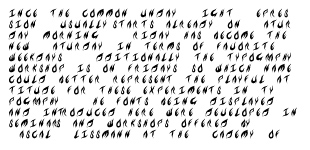 INCE THE COMMON UNDAY IGHT EPRES
SION USUALLY STARTS ALREADY ON ATUR
DAY MORNING RIDAY HAS BECOME THE
NEW ATURDAY IN TERMS OF FAVORITE
WEEKDAYS DDITIONALLY THE TYPOGRAPHY
WORKSHOP IS ON FRIDAYS SO WHICH NAME
COULD BETTER REPRESENT THE PLAYFUL AT
TITUDE FOR THESE EXPERIMENTS IN TY
POGRAPHY HE FONTS BEING DISPLAYED
AND INTRODUCED HERE WERE DEVELOPED IN
SEMINARS AND WORKSHOPS OFFERED BY
ASCAL LISSMANN AT THE CADEMY OF